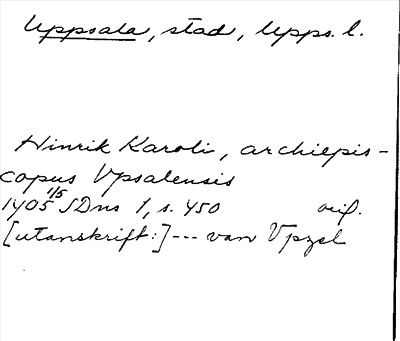 Uppsala, stad, Upps. l.
Hinrik Karoli, archiepis-
copus Vpsalensis
1405 1/5 SDns 1, s. 450 orig.
[utanskrift:] --- van Vpzel